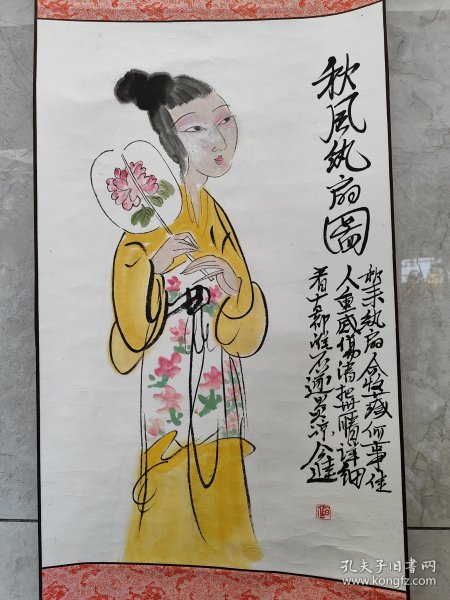 秋风纨扇图
秋来纨扇合收藏何事佳
人重感伤请把世情详细
看大都谁不逐炎凉
孔夫子旧书网
www.kongfz.com